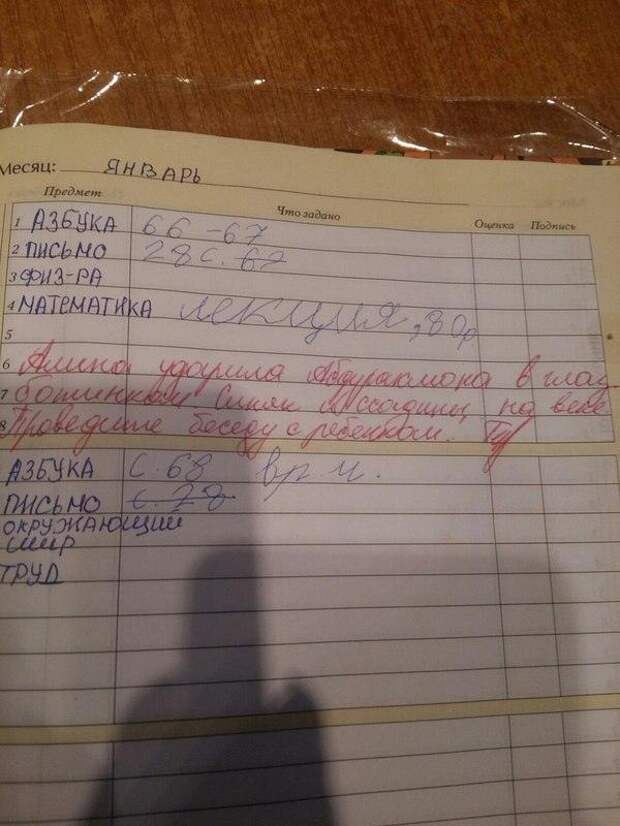 Месяц: ЯНВАРЬ
Предмет Что задано Оценка Подпись
1 АЗБУКА 66-67
2 ПИСЬМО 28 с. 67
3 ФИЗ-РА
4 МАТЕМАТИКА лекция, 80р
5
6 Алина ударила Абдурахмона в глаз
7 ботинком. Синяк и ссадины на веке
8 Проведите беседу с ребенком.
АЗБУКА С. 68
ПИСЬМО с. 28
ОКРУЖАЮЩИЙ
МИР
ТРУД